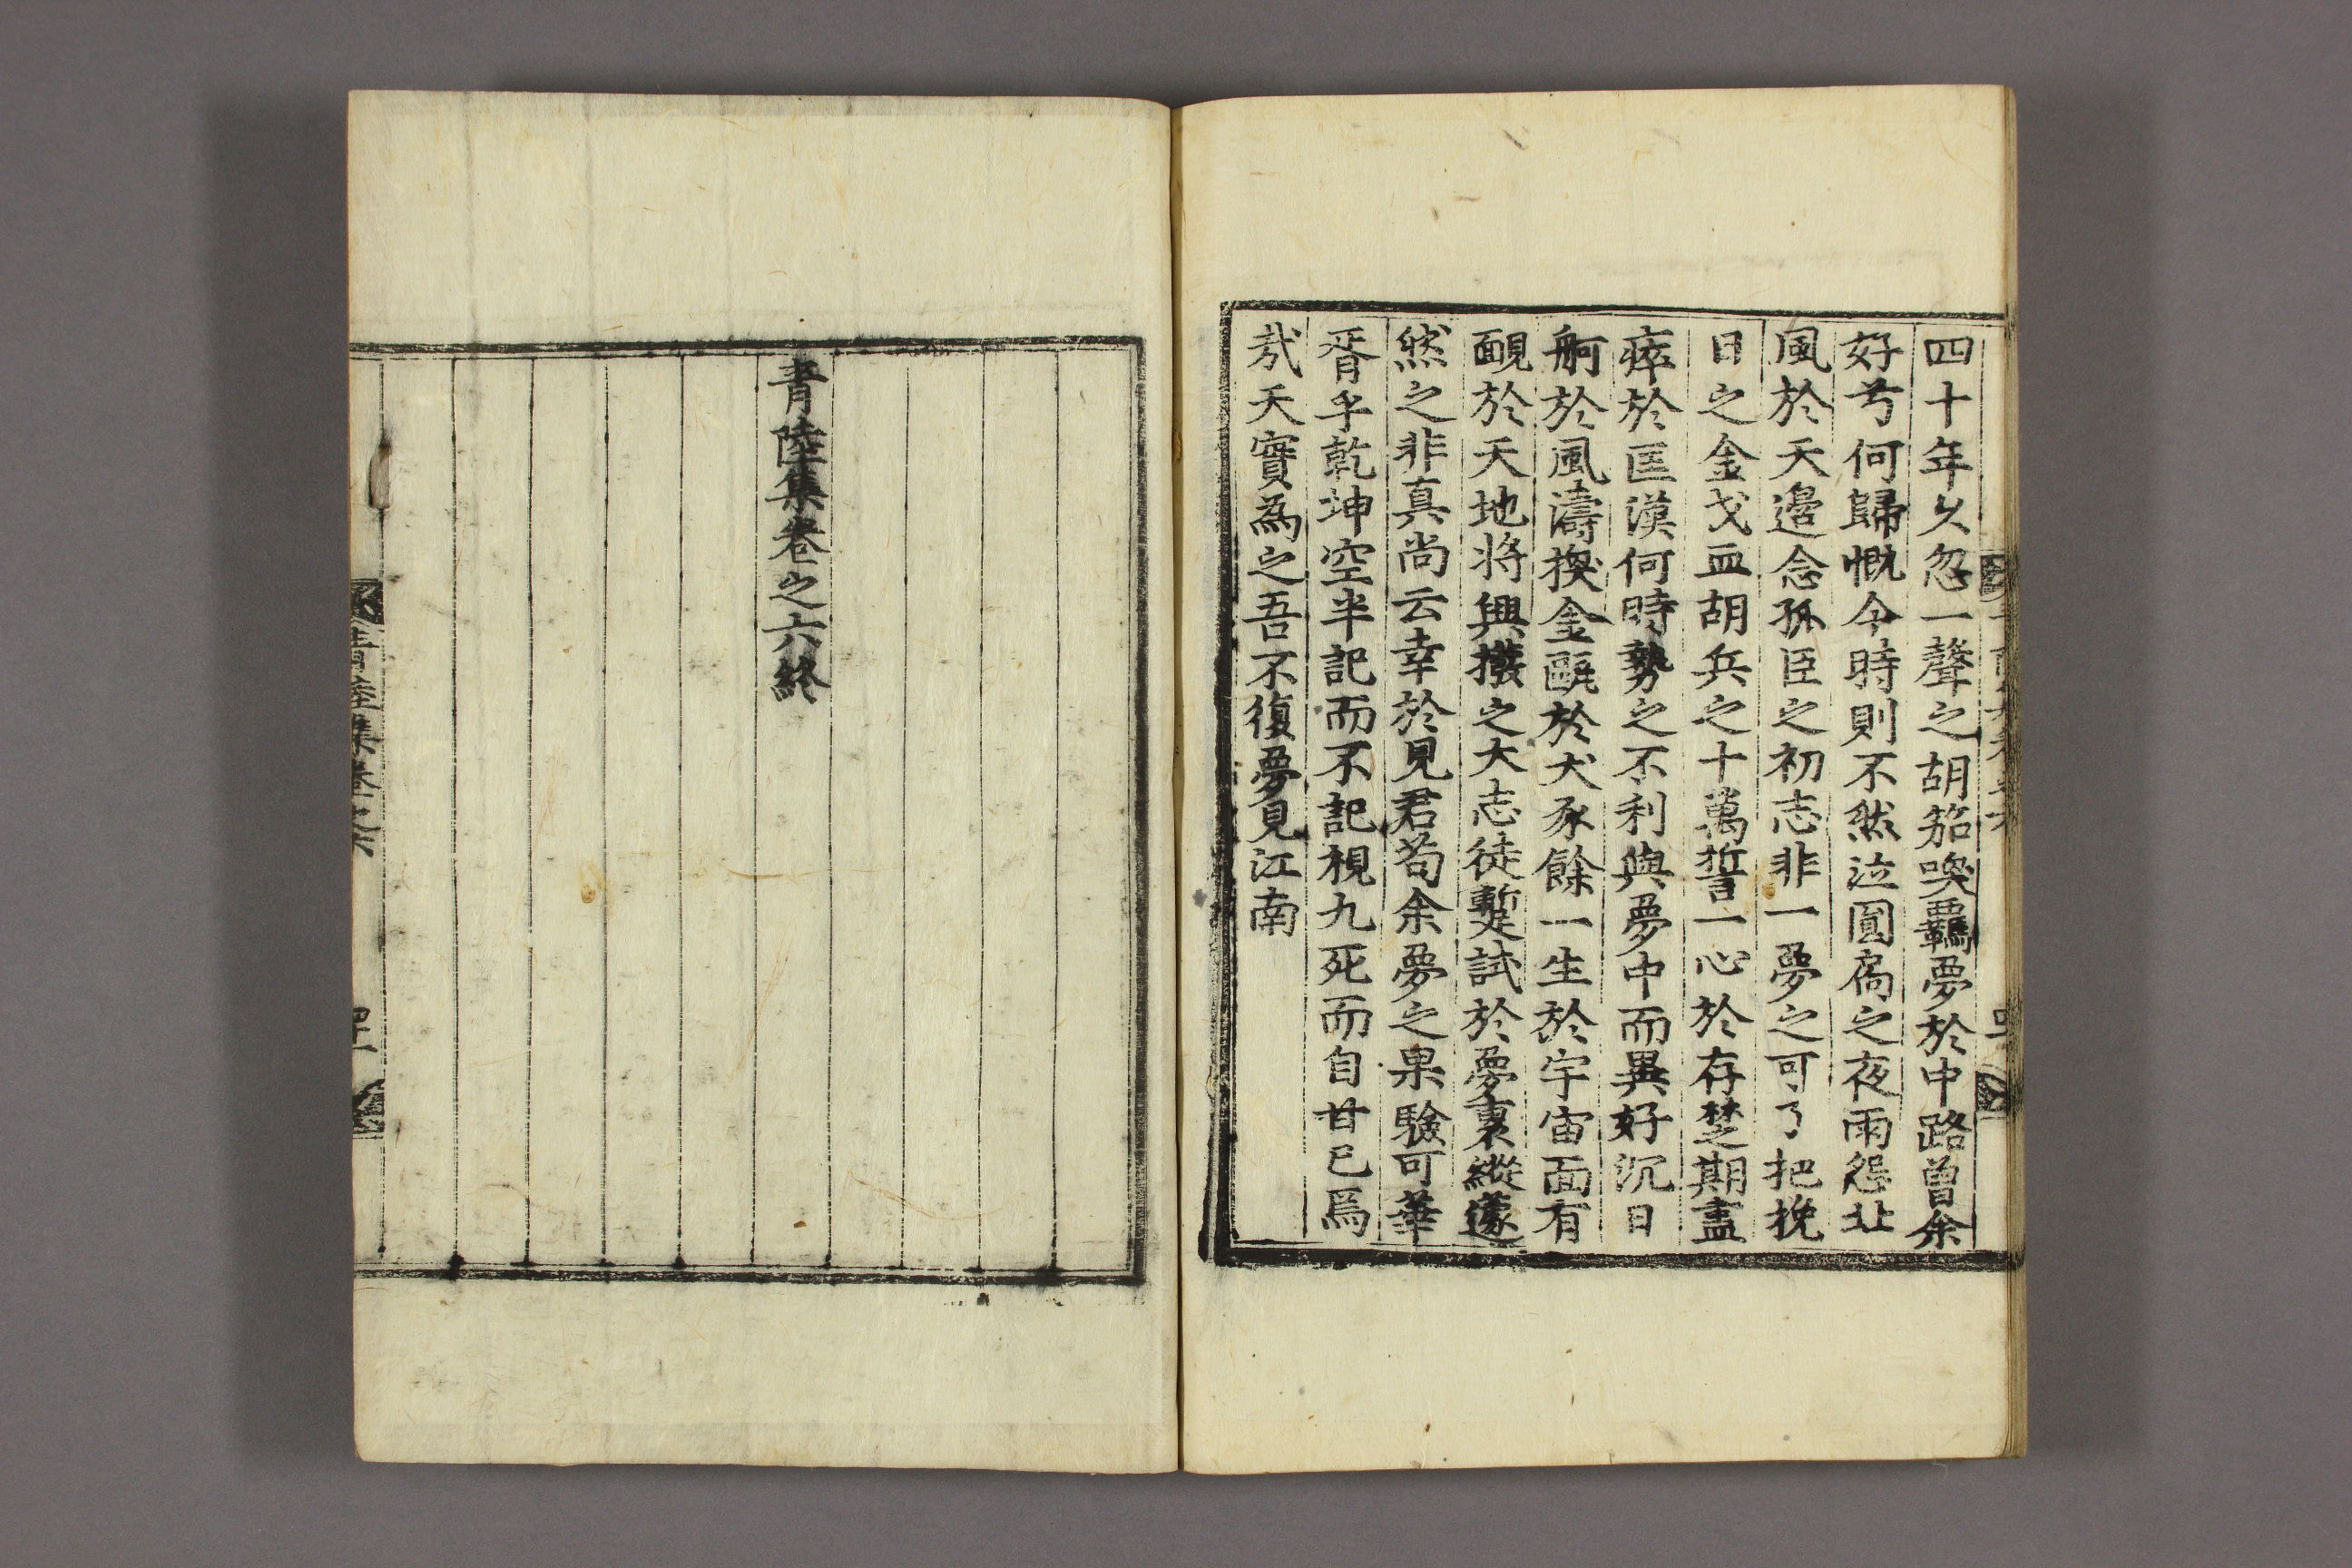 四十年久忽一聲之胡笳喚羈夢於中路曾余
好兮何歸慨今時則不然泣圓扃之夜雨怨北
風於天邊念孤臣之初志非一夢之可了把挽
日之金戈血胡兵之十萬誓一心於存楚期盡
瘁於匡漢何時勢之不利與夢中而異好沉日
舸於風濤擲金甌於犬豕餘一生於宇宙面有
靦於天地將興撥之大志徒蹔試於夢裏縱蘧
然之非真尚云幸於見君苟余夢之果驗可華
胥乎乾坤空半記而不記視九死而自甘已焉
㢤天實為之吾不復夢見江南
青陸集卷之六終
青陸集卷之六